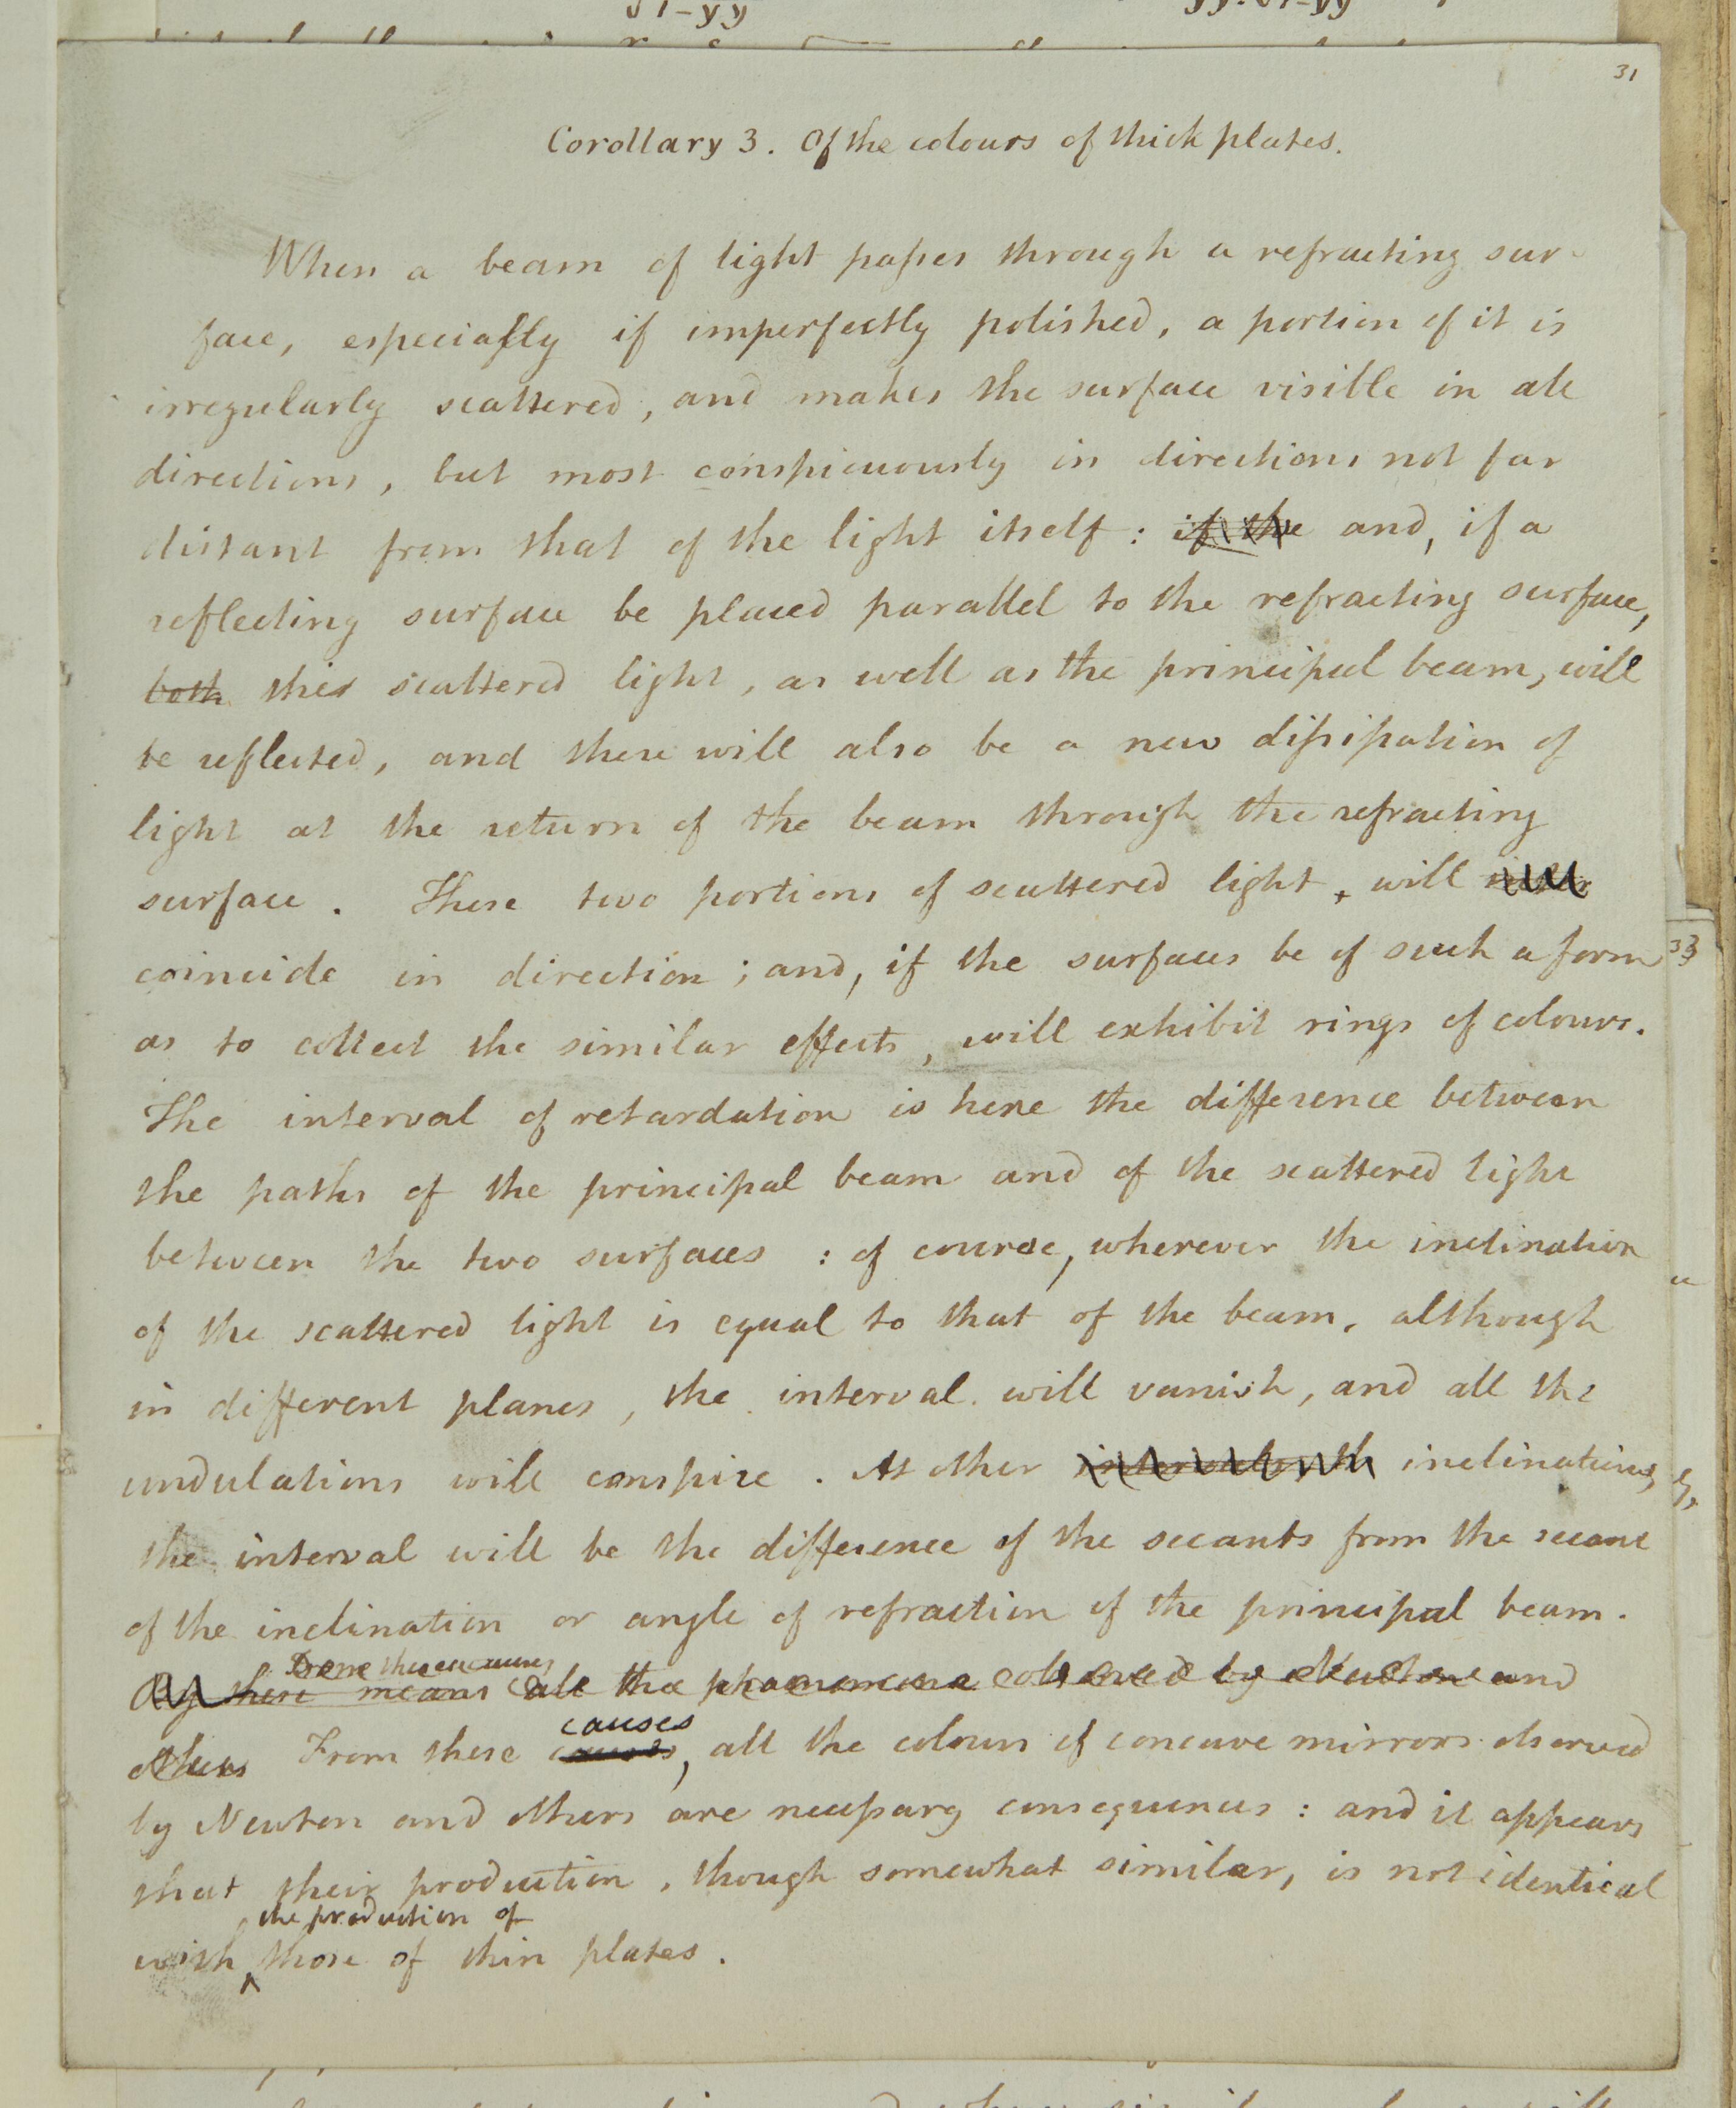 31
Corollary 3. Of the colours of thick plates.
When a beam of light paſses through a refracting sur-
face, especially if imperfectly polished, a portion of it is
irregularly scattered, and makes the surface visible in all
directions, but most conspicuously in directions not far
distant from that of the light itself: if the and, if a
reflecting surface be placed parallel to the refracting surface,
both this scattered light, as well as the principal beam, will
be reflected, and there will also be a new diſsipation of
light at the return of the beam through the refracting
surface. These two portions of scattered light, will
coincide in direction; and, if the surfaces be of such a form
33
as to collect the similar effects, will exhibit rings of colours.
The interval of retardation is here the difference between
the paths of the principal beam and of the scattered light
between the two surfaces: of course, wherever the inclination
of the scattered light is equal to that of the beam, although
in different planes, the interval will vanish, and all the
undulations will conspire. At other inclinations,
the interval will be the difference of the secants from the secant
of the inclination or angle of refraction of the principal beam.
From these causes
By these means all the phaenomena observed by Newton and
causes
others From these causes, all the colours of concave mirrors observed
by Newton and others are neceſsary consequences: and it appears
that their production, though somewhat similar, is not identical
the production of
with those of thin plates.